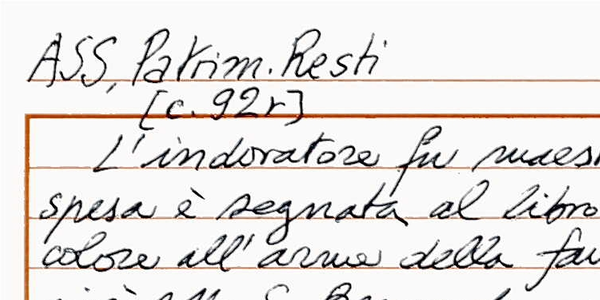 ASS, Patrim. Resti
[c. 92r]
L'indoratore fu maes
spesa è segnata al libro
colore all'arme della fa